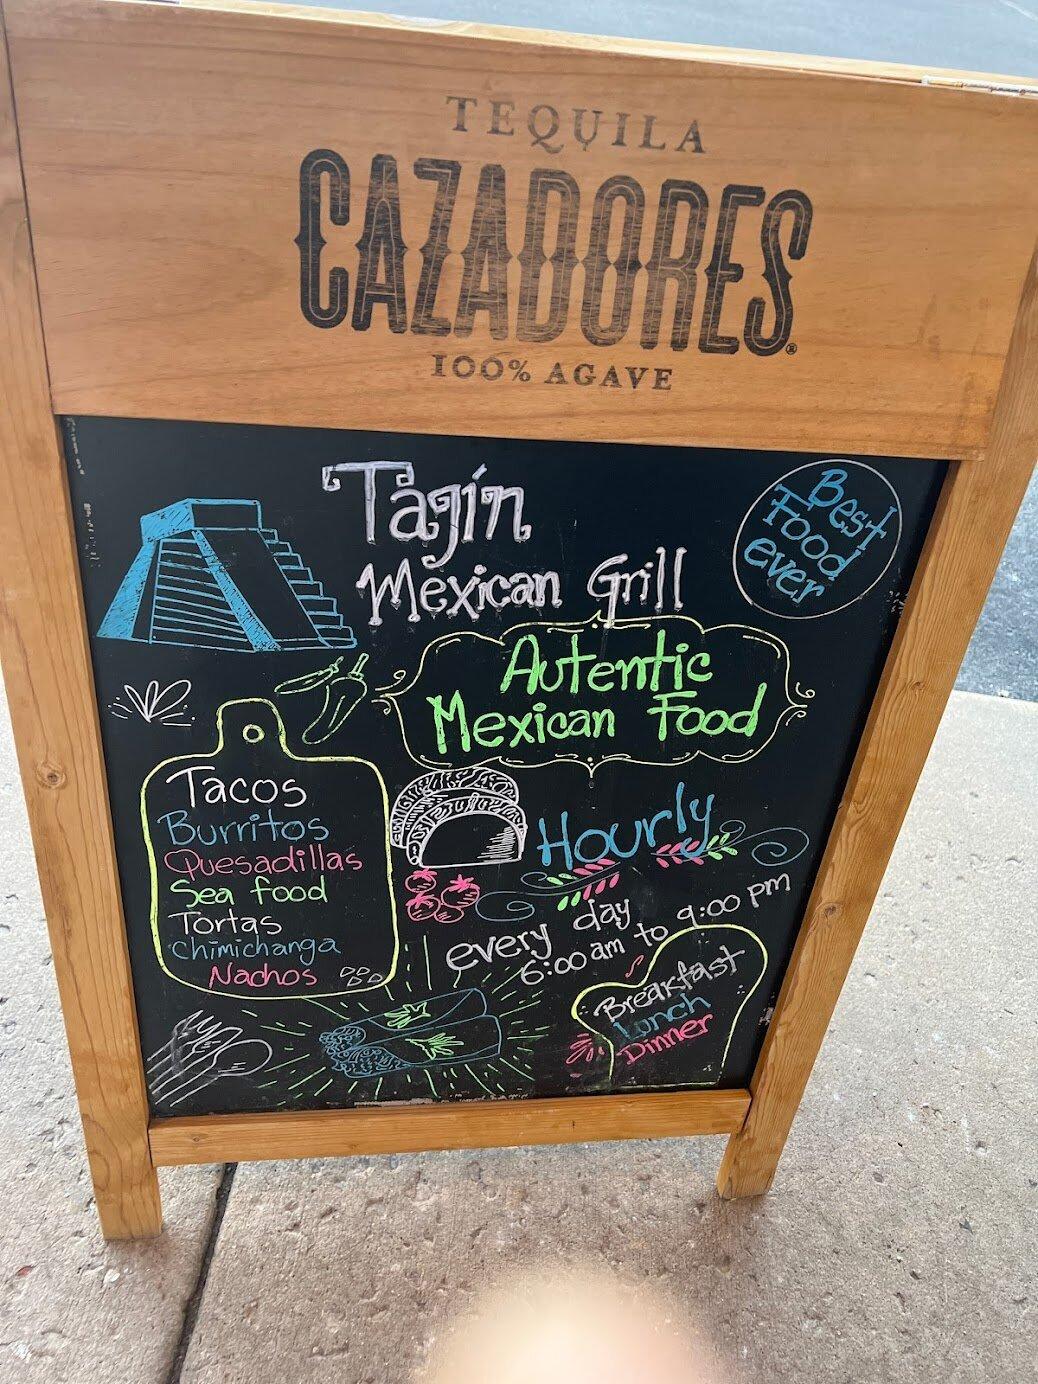 TEQUILA
CAZADORES®
100% AGAVE
Tajín
Mexican Grill
Best
Food
ever
Autentic
Mexican Food
Tacos
Burritos
Quesadillas
Sea food
Tortas
Chimichanga
Nachos
Hourly
every day
6:00 am to 9:00 pm
Breakfast
Lonch
Dinner